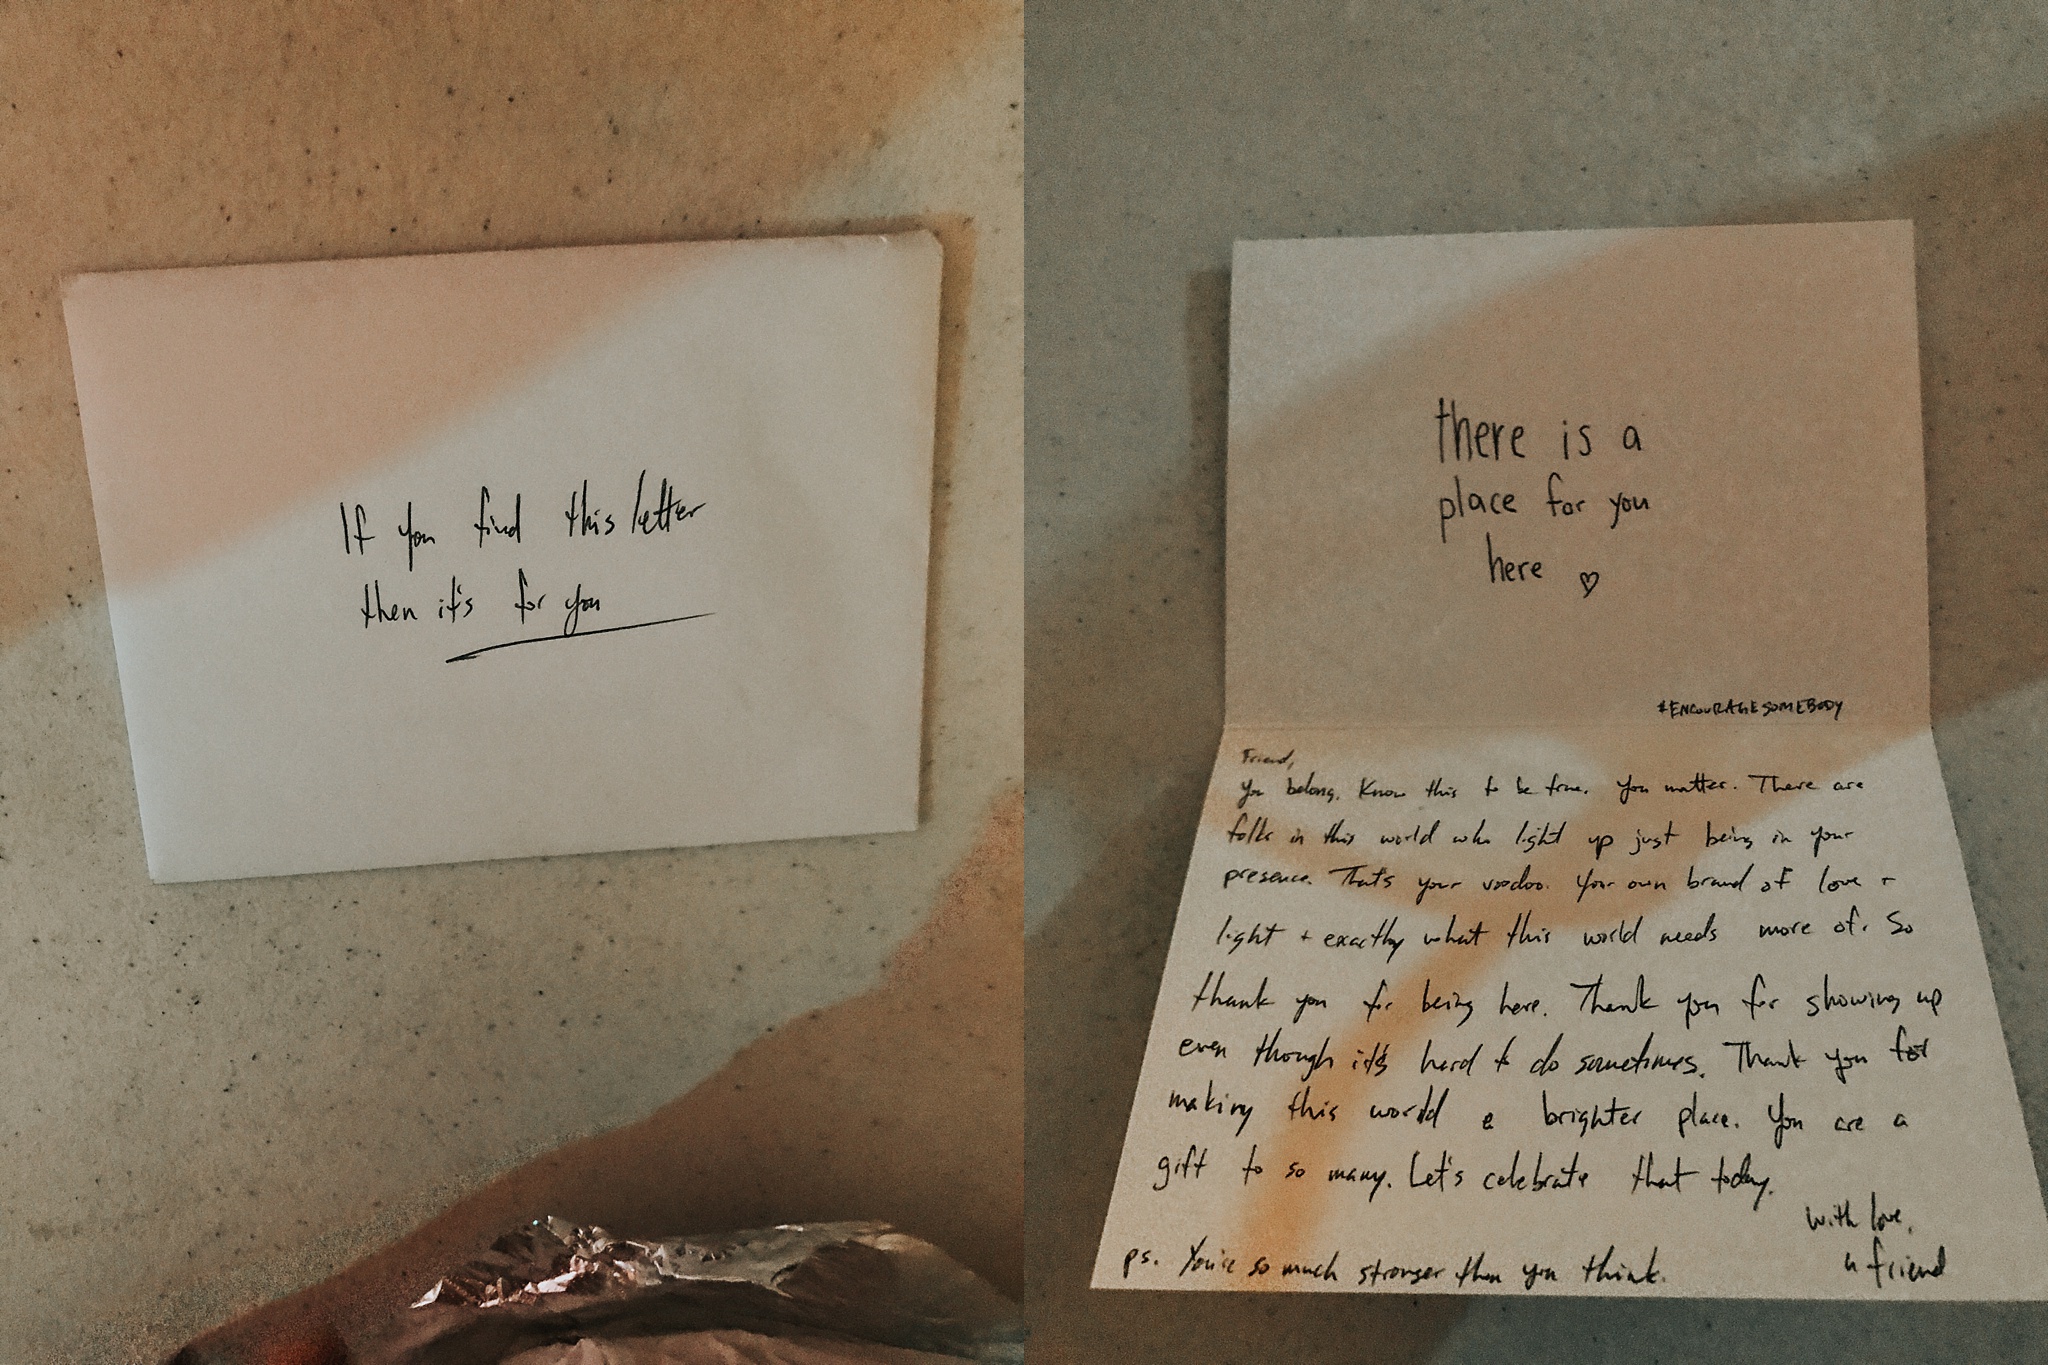 If you find this letter
then it's for you
there is a
place for you
here ♡
#ENCOURAGESOMEBODY
Friend,
You belong. Know this to be true. You matter. There are
folks in this world who light up just being in your
presence. That's your voodoo. Your own brand of love +
light + exactly what this world needs more of. So
thank you for being here. Thank you for showing up
even though it's hard to do sometimes. Thank you for
making this world a brighter place. You are a
gift to so many. Let's celebrate that today.
With love,
a friend
ps. You're so much stronger than you think.